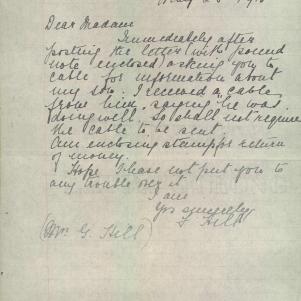 Dear Madam
Immediately after
posting the letter (with pound
note enclosed) asking you to
cable for information about
my son: I received a cable
from him, saying he was
doing well. So shall not require
the cable to be sent.
Am enclosing stamp for return
of money.
Hope I have not put you to
any trouble over it
I am
Yrs sincerely
F Hill
(Mrs G. Hill)